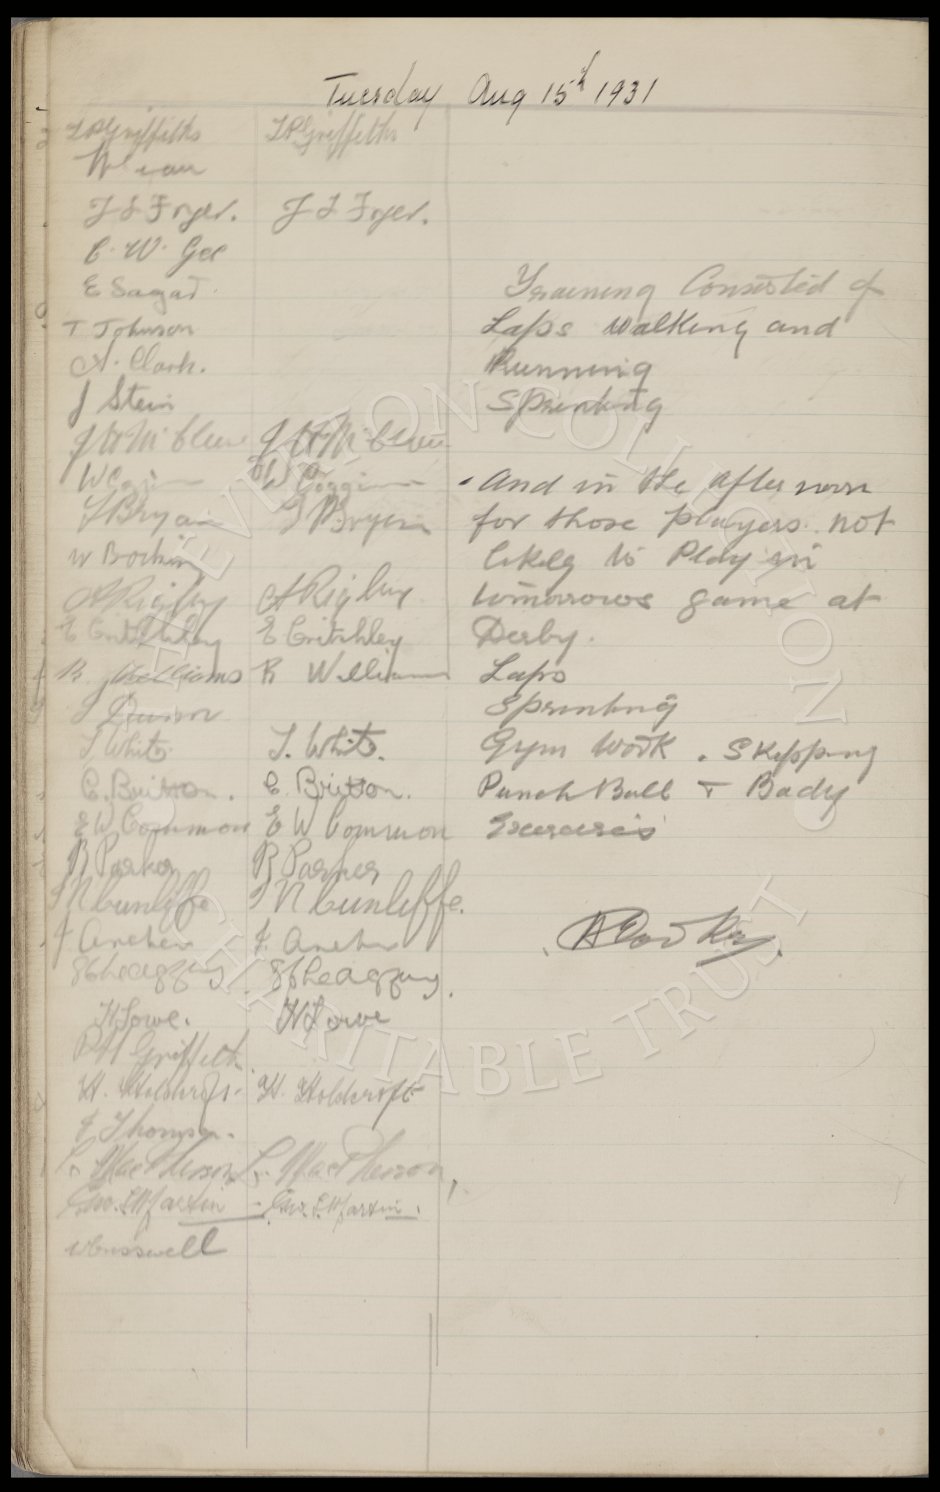 Tuesday Aug 15th 1931
T P Griffiths T P Griffiths
J L Fryer. J L Fryer.
C. W. Gee
E Sagar.
Training Consisted of
T Johnson
Laps Walking and
A. Clark.
Running
J Stein
Sprinting
W Coggins W Coggins
- And in the afternoon
Bryan Bryan
for those players not
W Bocking
likely to Play in
A Rigby A Rigby
tomorrows game at
E Critchley E Critchley
Derby.
R Williams R Williams
Laps
J Dunn
Sprinting
T. White. T. White.
Gym Work. Skipping
C. Britton. C. Britton.
Punch Ball + Body
E W Common E W Common
Exercises
R Parker R Parker
J N Cunliffe J N Cunliffe.
H E Cooke.
J Archer J. Archer
H Lowe. H Lowe
P H Griffiths
H. Holdcroft. H. Holdcroft
J Thomson.
L. MacPherson L. MacPherson,
Geo. S. Martin - Geo. S. Martin.
W Cresswell
THE EVERTON COLLECTION CHARITABLE TRUST